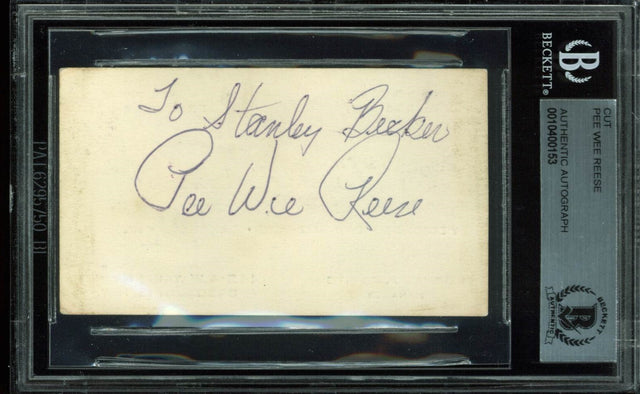 To Stanley Becker
Pee Wee Reese
B
BECKETT
CUT
PEE WEE REESE
AUTHENTIC AUTOGRAPH
0010400153
BECKETT
AUTHENTIC